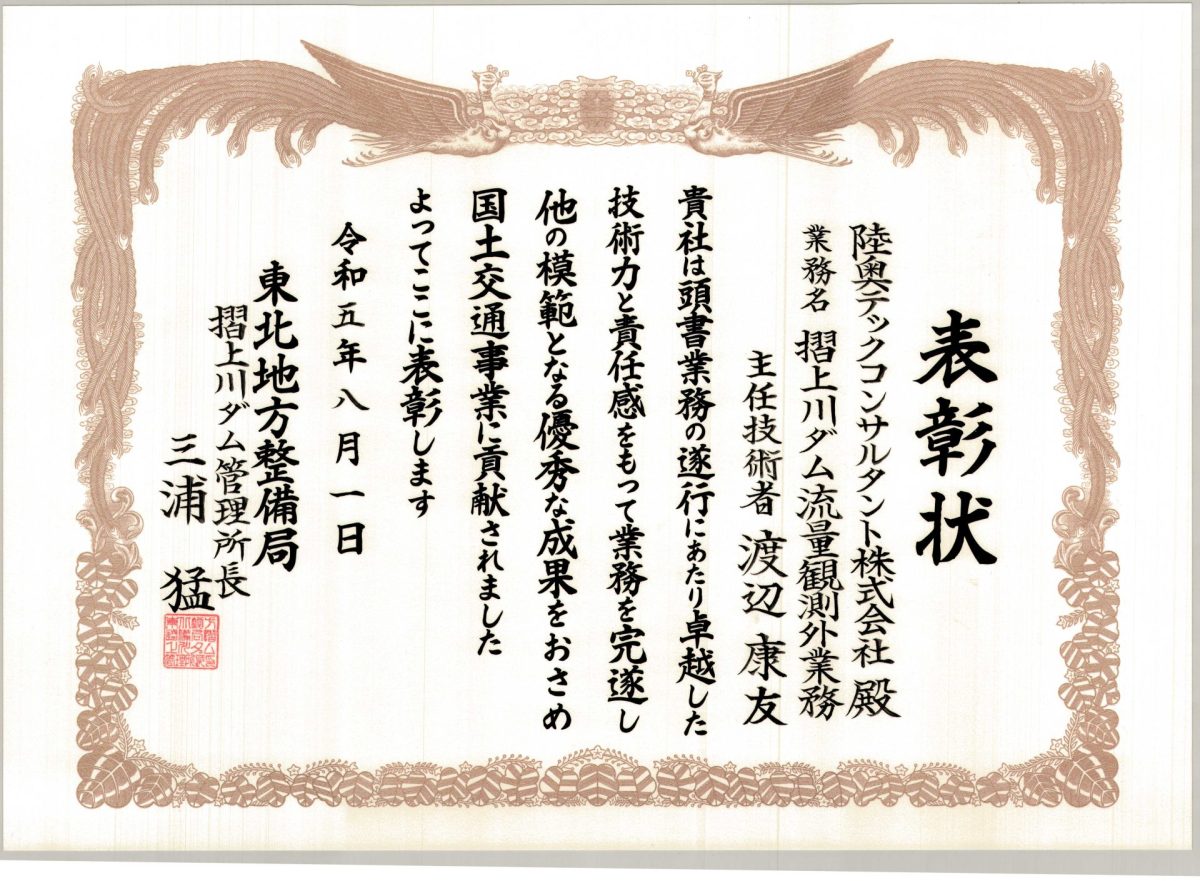 表彰状
陸奥テックコンサルタント株式会社 殿
業務名 摺上川ダム流量観測外業務
主任技術者 渡辺 康友
貴社は頭書業務の遂行にあたり卓越した
技術力と責任感をもって業務を完遂し
他の模範となる優秀な成果をおさめ
国土交通事業に貢献されました
よってここに表彰します
令和五年八月一日
東北地方整備局
摺上川ダム管理所長
三浦 猛